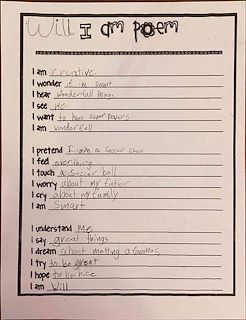 Will I am poem
I am creative
I wonder if im smart
I hear wonderfall things
I see me
I want to have super powers
I am wonderfall
I pretend I am a soccer star
I feel everything
I touch a soccer ball
I worry about my futer
I cry about my family
I am Smart
I understand me
I say great things
I dream about meeting a famos
I try to be great
I hope to be nice
I am Will